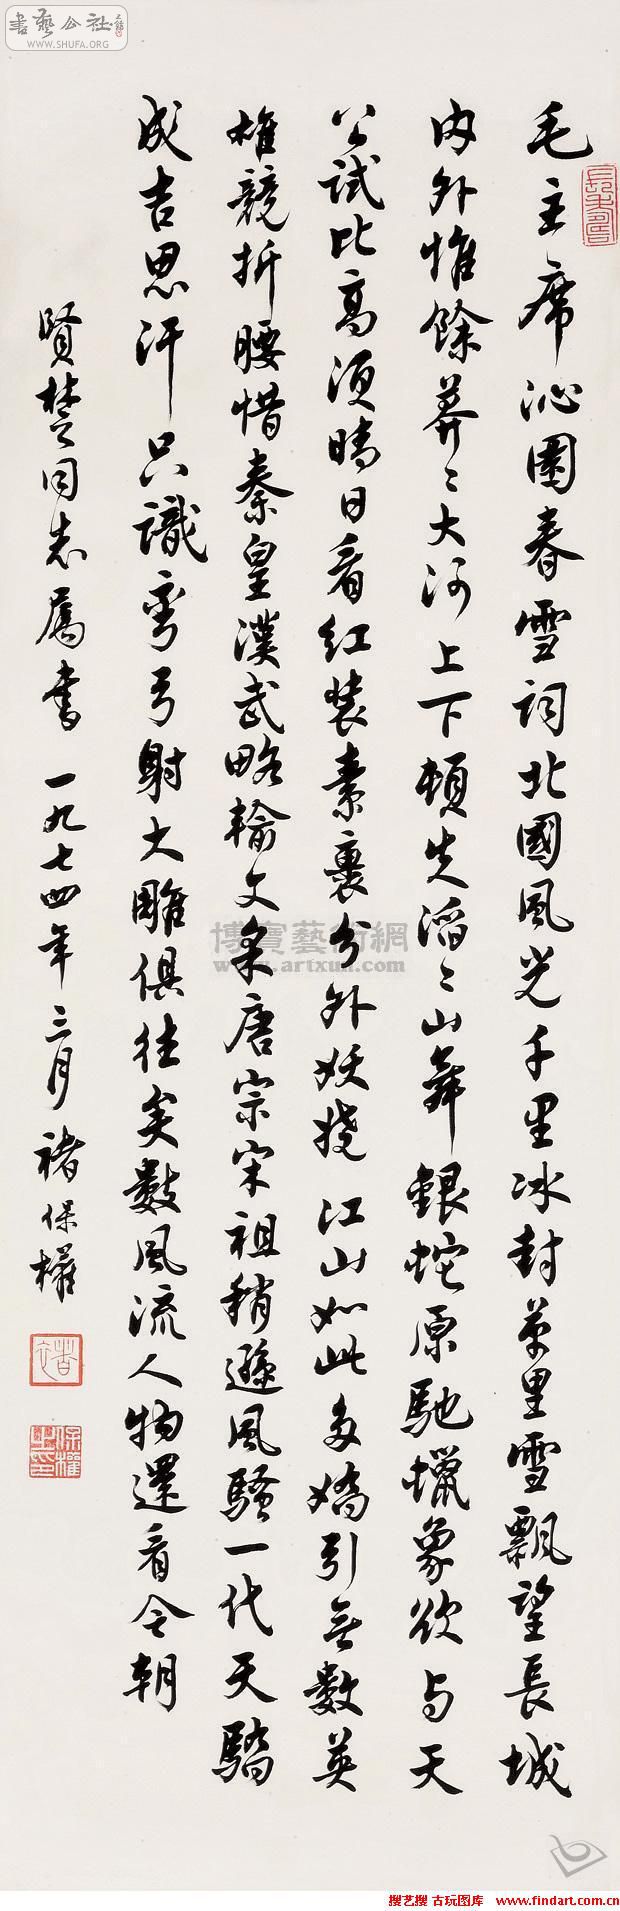 書藝公社
WWW.SHUFA.ORG
毛主席沁園春雪詞北國風光千里冰封萬里雪飄望長城
內外惟餘莽々大河上下頓失滔々山舞銀蛇原馳蠟象欲与天
公試比高須晴日看紅裝素裹分外妖嬈江山如此多嬌引無數英
雄競折腰惜秦皇漢武略輸文采唐宗宋祖稍遜風騷一代天驕
成吉思汗只識彎弓射大雕俱往矣數風流人物還看今朝
賢楚同志屬書 一九七四年三月 褚保權
褚
保權之印
博寶藝術網
www.artxun.com
搜艺搜 古玩图库 www.findart.com.cn